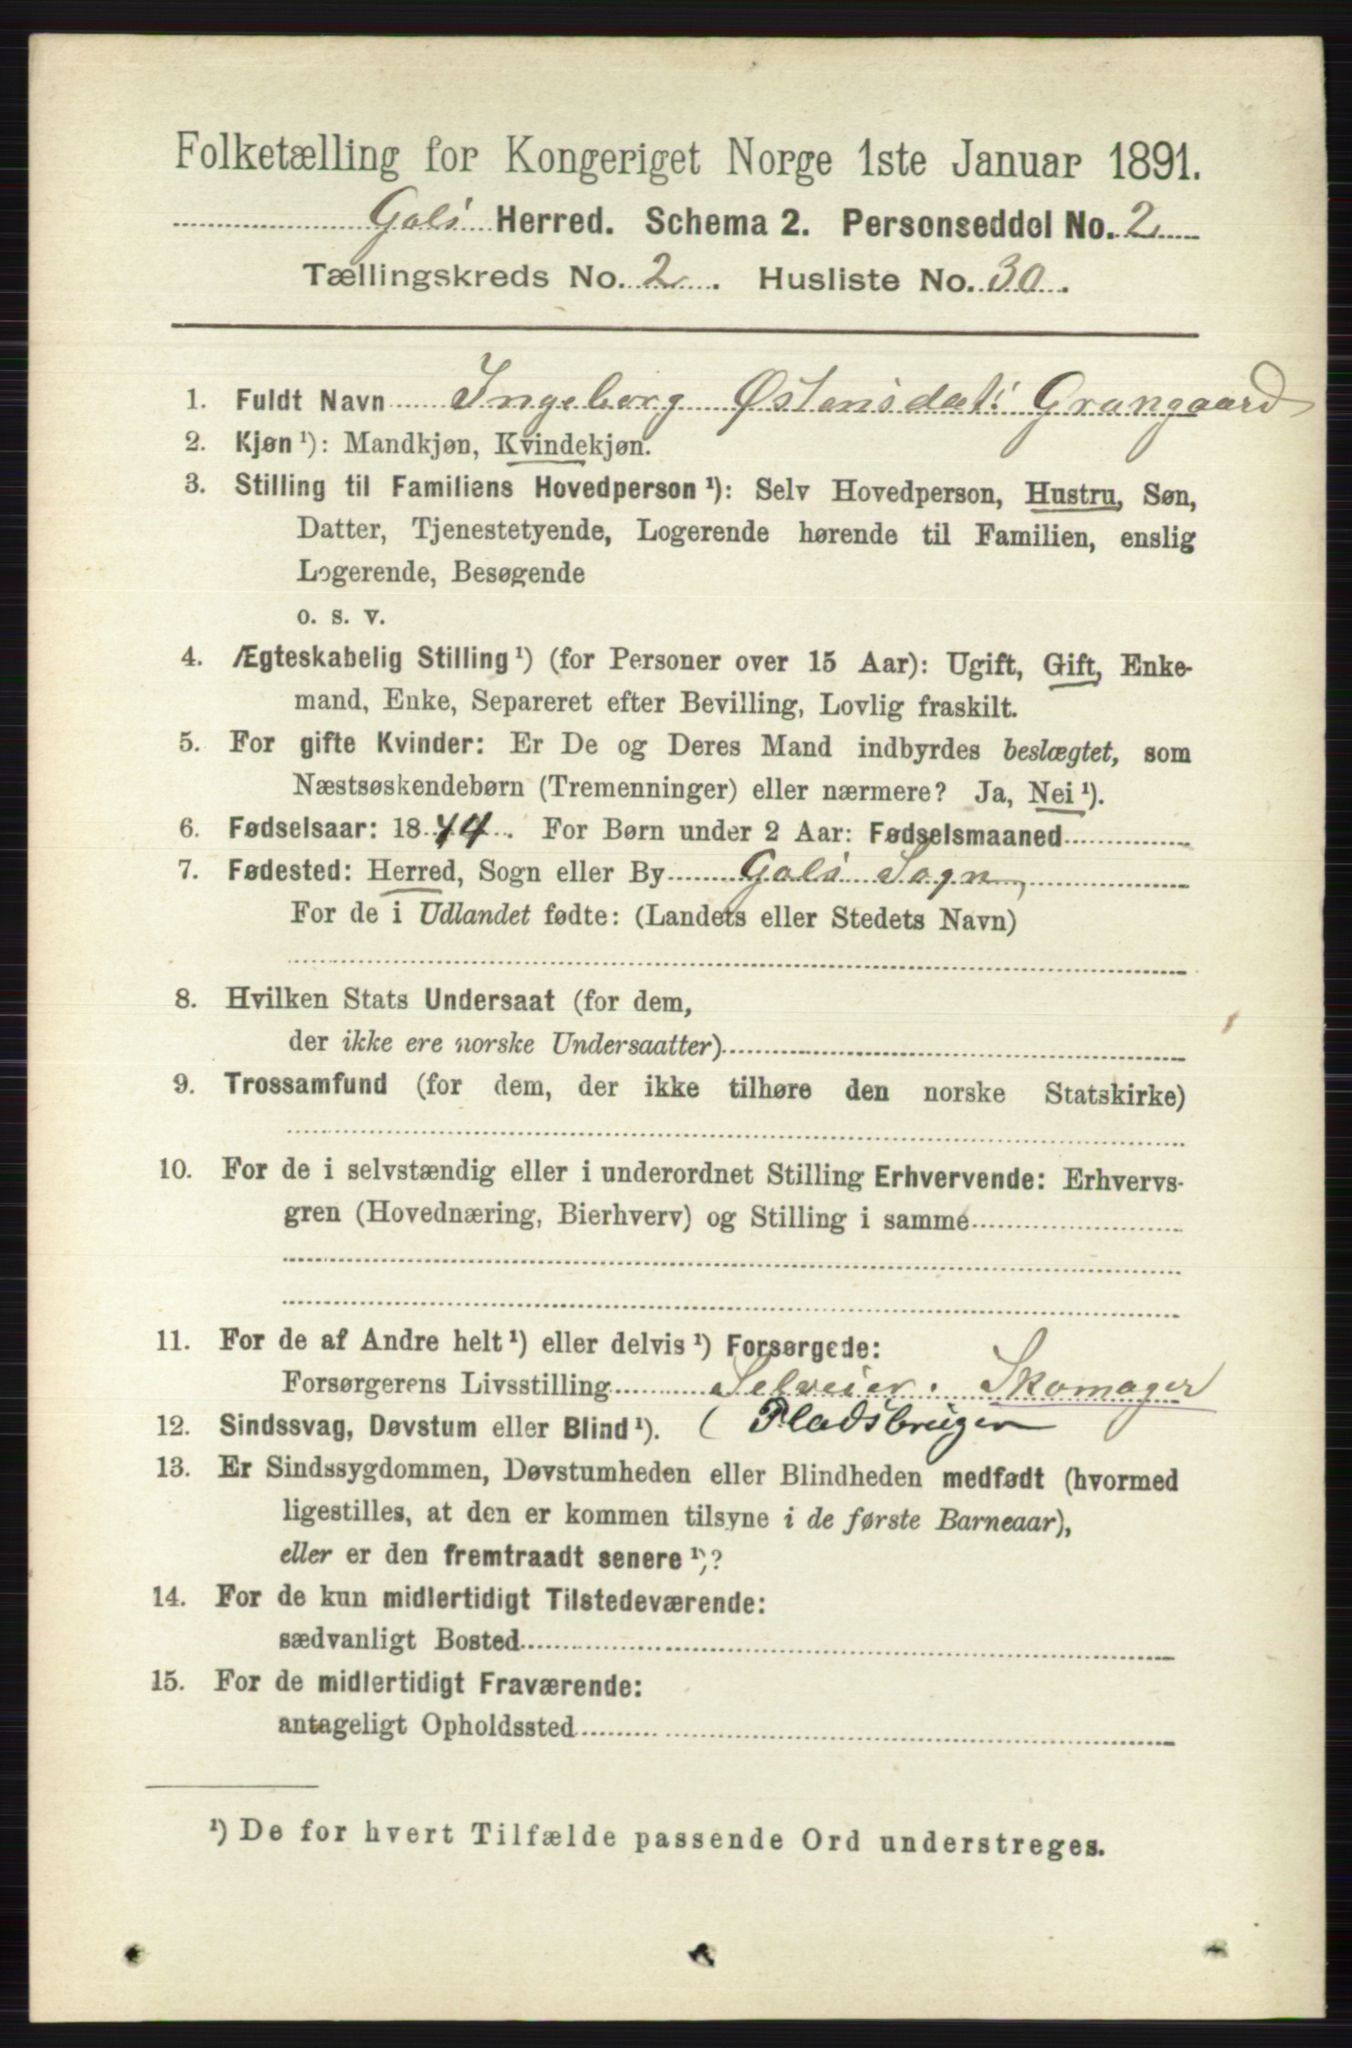 Folketælling for Kongeriget Norge 1ste Januar 1891.
Gols Herred. Schema 2. Personseddel No. 2
Tællingskreds No. 2. Husliste No. 30.
1. Fuldt Navn Ingeborg Østensdat. Grangaard
2. Kjøn ¹): Mandkjøn, Kvindekjøn.
3. Stilling til Familiens Hovedperson ¹): Selv Hovedperson, Hustru, Søn,
Datter, Tjenestetyende, Logerende hørende til Familien, enslig
Logerende, Besøgende
o. s. v.
4. Ægteskabelig Stilling ¹) (for Personer over 15 Aar): Ugift, Gift, Enke-
mand, Enke, Separeret efter Bevilling, Lovlig fraskilt.
5. For gifte Kvinder: Er De og Deres Mand indbyrdes beslægtet, som
Næstsøskendebørn (Tremenninger) eller nærmere? Ja, Nei ¹).
6. Fødselsaar: 1844. For Børn under 2 Aar: Fødselsmaaned
7. Fødested: Herred, Sogn eller By Gols Sogn,
For de i Udlandet fødte: (Landets eller Stedets Navn)
8. Hvilken Stats Undersaat (for dem,
der ikke ere norske Undersaatter)
9. Trossamfund (for dem, der ikke tilhøre den norske Statskirke)
10. For de i selvstændig eller i underordnet Stilling Erhvervende: Erhvervs-
gren (Hovednæring, Bierhverv) og Stilling i samme
11. For de af Andre helt ¹) eller delvis ¹) Forsørgede:
Forsørgerens Livsstilling Selveier. Skomager
12. Sindssvag, Døvstum eller Blind ¹). ( Pladsbruger
13. Er Sindssygdommen, Døvstumheden eller Blindheden medfødt (hvormed
ligestilles, at den er kommen tilsyne i de første Barneaar),
eller er den fremtraadt senere ¹)?
14. For de kun midlertidigt Tilstedeværende:
sædvanligt Bosted
15. For de midlertidigt Fraværende:
antageligt Opholdssted
¹) De for hvert Tilfælde passende Ord understreges.